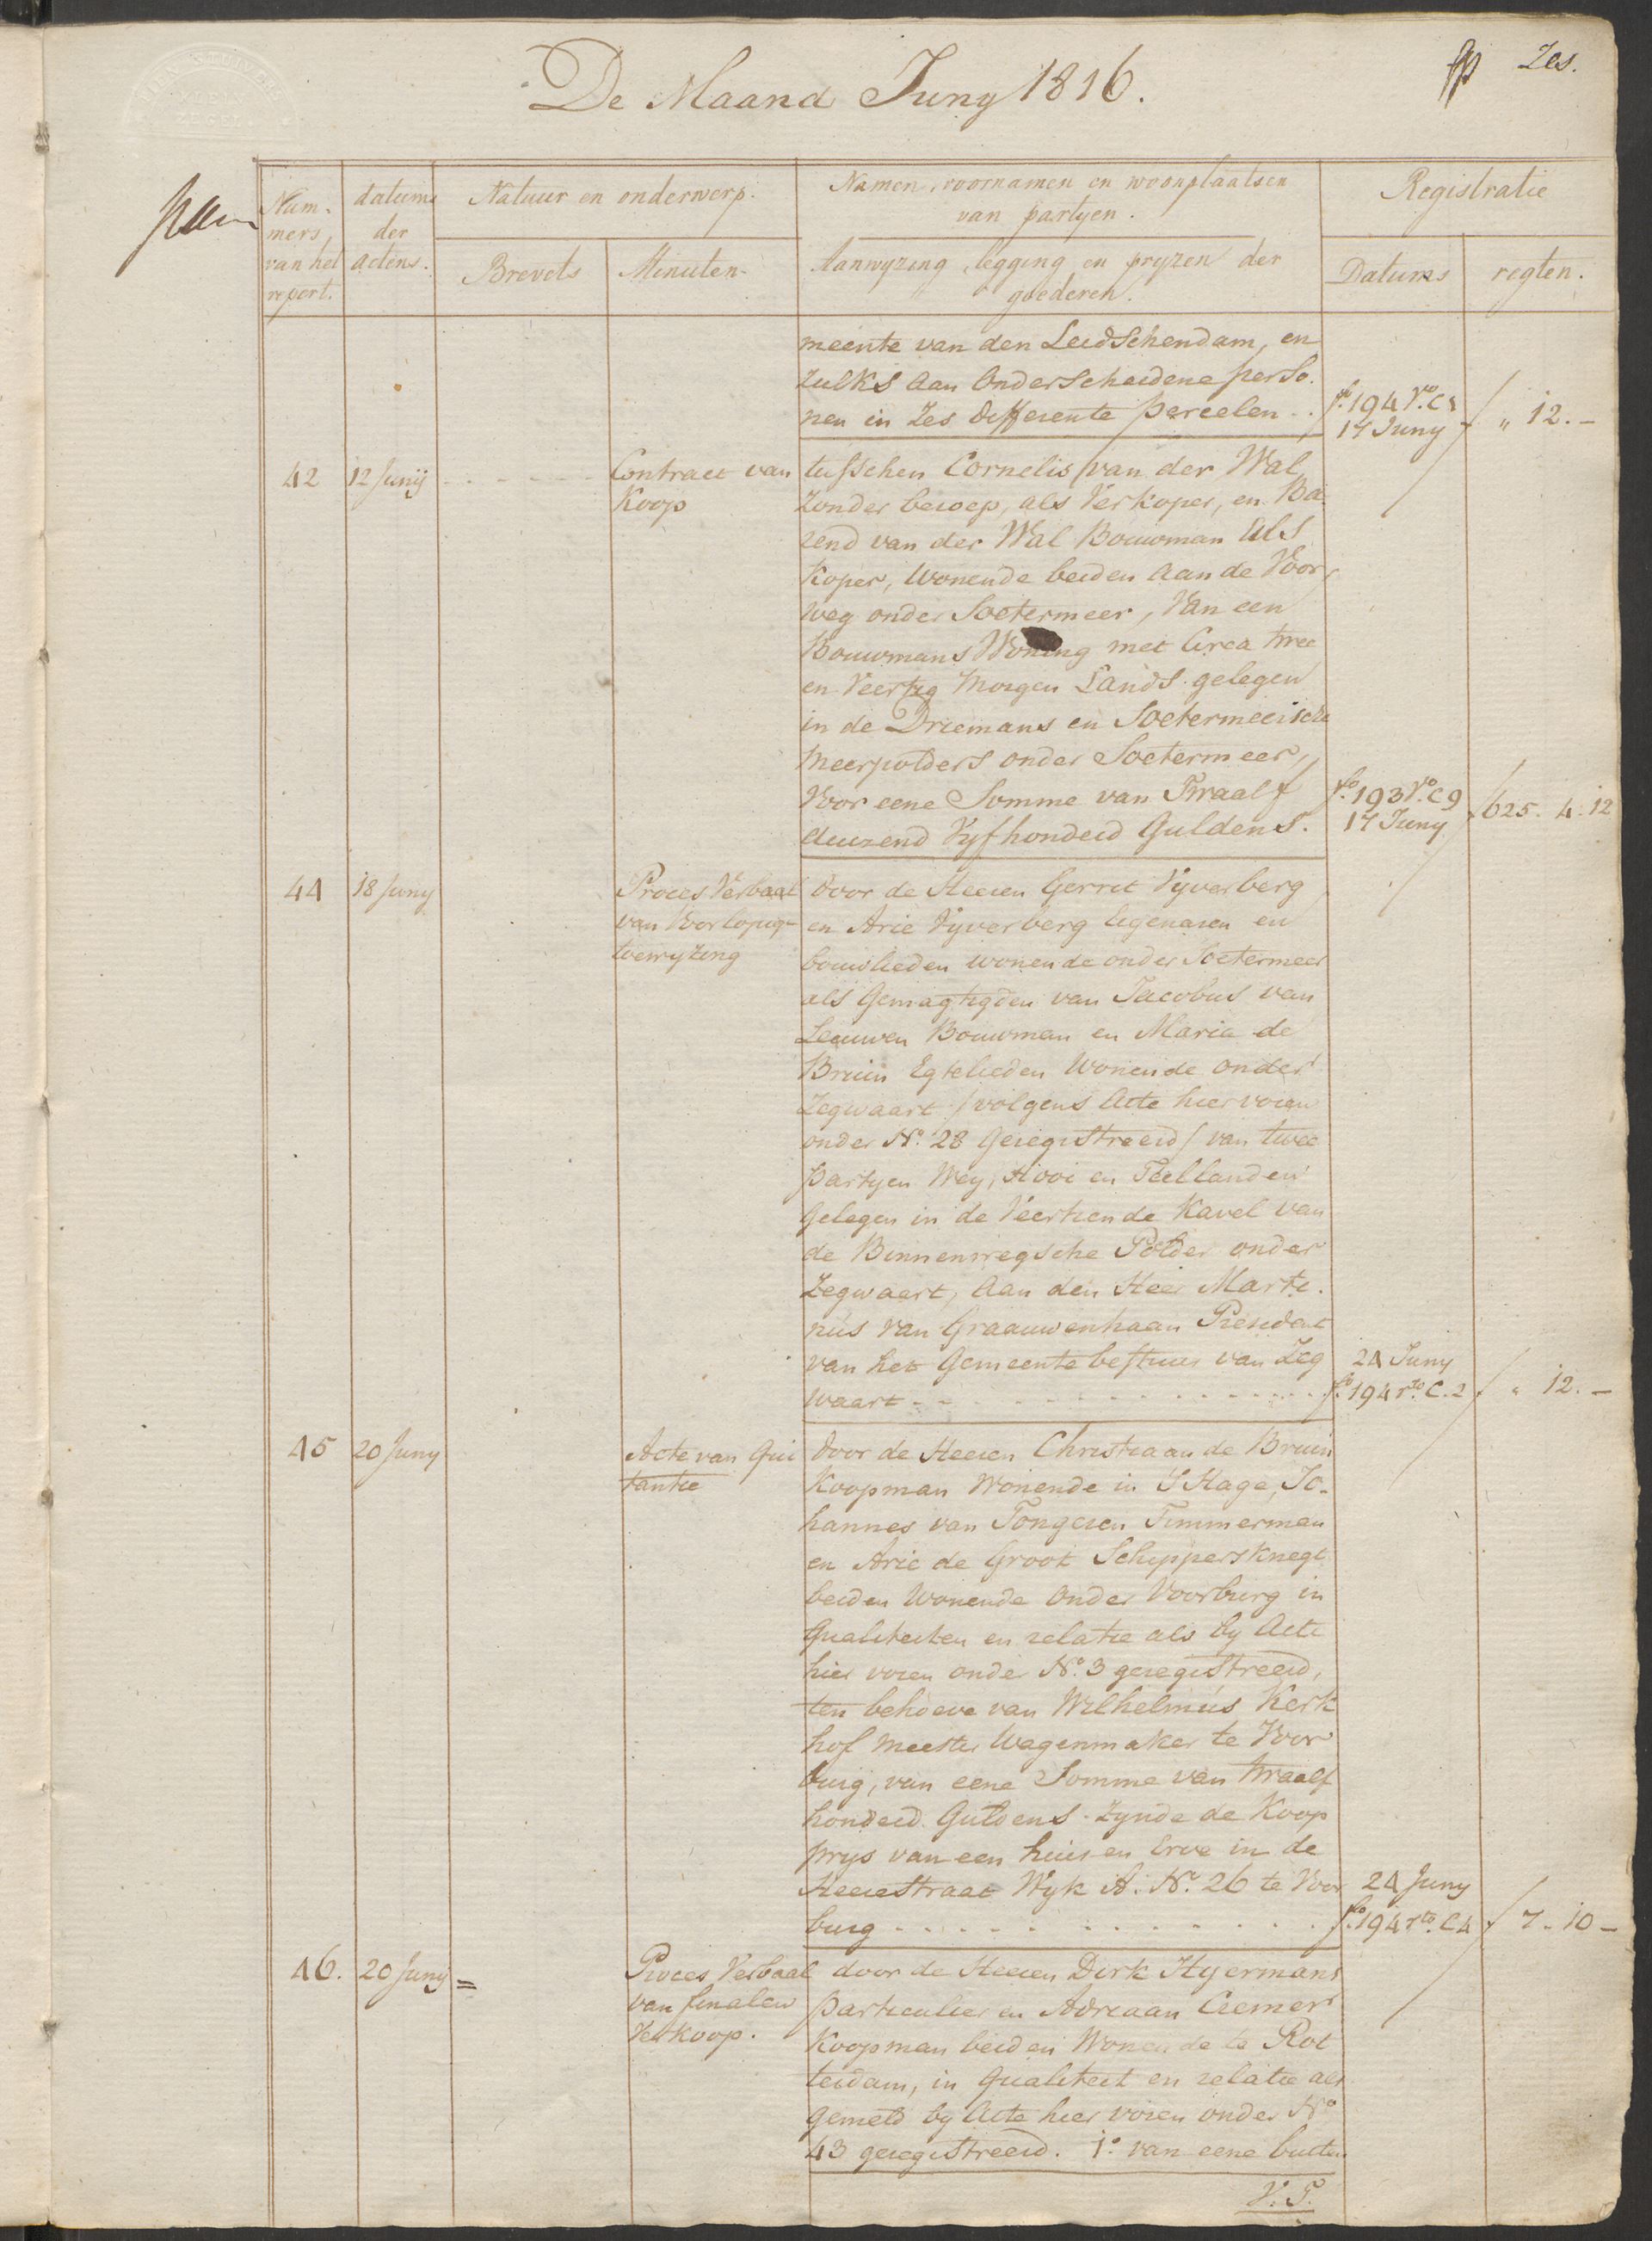 De Maand Juny 1816.
Zes.
Num-
mers,
van het
repert.
datums
der
actens.
Natuur en onderwerp.
Brevets
Minuten-
Namen, voornamen en woonplaatsen
van partyen.
Aanwyzing, legging en pryzen der
goederen.
Registratie
Datums
regten.
meente van den Leidschendam, en
zulks aan Onderscheidene perso-
nen in Zes differente perceelen - .
fo. 194 Vo. C1
17 Juny
f " 12. -
42
12 Junij
Contract van
Koop
tusschen Cornelis van der Wal
Zonder beroep, als Verkoper, en Ba
rend van der Wal Bouwman als
Koper, Wonende beiden aan de Voor,
weg onder Soetermeer, Van een
Bouwmans Woning met Circa twee
en Veertig Morgen Lands gelegen
in de Driemans en Soetermeersche
Meerpolders onder Soetermeer,
Voor eene Somme van Twaalf
duizend Vyfhonderd Guldens.
fo. 193 Vo. C9
17 Juny
f 625. 4. 12
44
18 Juny
Proces Verbaal
van Voorlopige
toewyzing
door de Heeren Gerrit Vyverberg
en Arie Vyverberg Eigenaren en
bouwlieden wonende onder Soetermeer
als Gemagtigden van Jacobus van
Leeuwen Bouwman en Maria de
Bruin Egtelieden Wonende onder
Zegwaart / volgens Acte hier voren
onder No. 28 Geregistreerd / van twee
partyen Wey, Hooi en Teellanden
Gelegen in de Veertiende Kavel van
de Binnenwegsche Polder onder
Zegwaart, Aan den Heer Marti-
nus van Graauwenhaan President
van het Gemeente bestuur van Zeg
waart - - - - - - - -
24 Juny
fo. 194 rto. C. 2
f " 12. -
45
20 Juny
Acte van Qui
tantie
door de Heeren Christiaan de Bruin
Koopman Wonende in 'S Hage, Jo-
hannes van Tongeren Timmerman
en Arie de Groot Schippersknegt
beiden Wonende Onder Voorburg in
Qualiteiten en relatie als by Acte
hier voren onder No. 3 geregistreerd,
ten behoeve van Wilhelmus Kerk
hof Meester Wagenmaker te Voor
burg, van eene Somme van twaalf
honderd Guldens. Zynde de Koop
prys van een huis en Erve in de
Heerestraat Wyk A. No. 26 te Voor
burg - - - - - - - -
24 Juny
fo. 194 rto. C4
f 7. 10 -
46.
20 Juny =
Proces Verbaal
van finalen
Verkoop.
door de Heeren Dirk Hyermans
particulier en Adriaan Cremer
Koopman beiden Wonende te Rot
terdam, in Qualiteit en relatie als
gemeld by Acte hier voren onder No.
43 geregistreerd. 1o. van eene buiten
V. T.